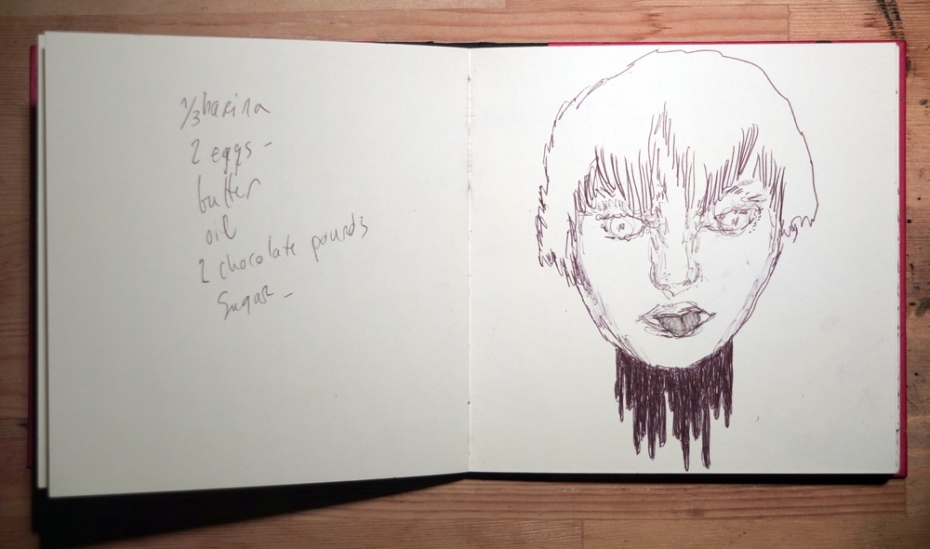 1/3 harina
2 eggs -
butter
oil
2 chocolate pounds
Sugar -